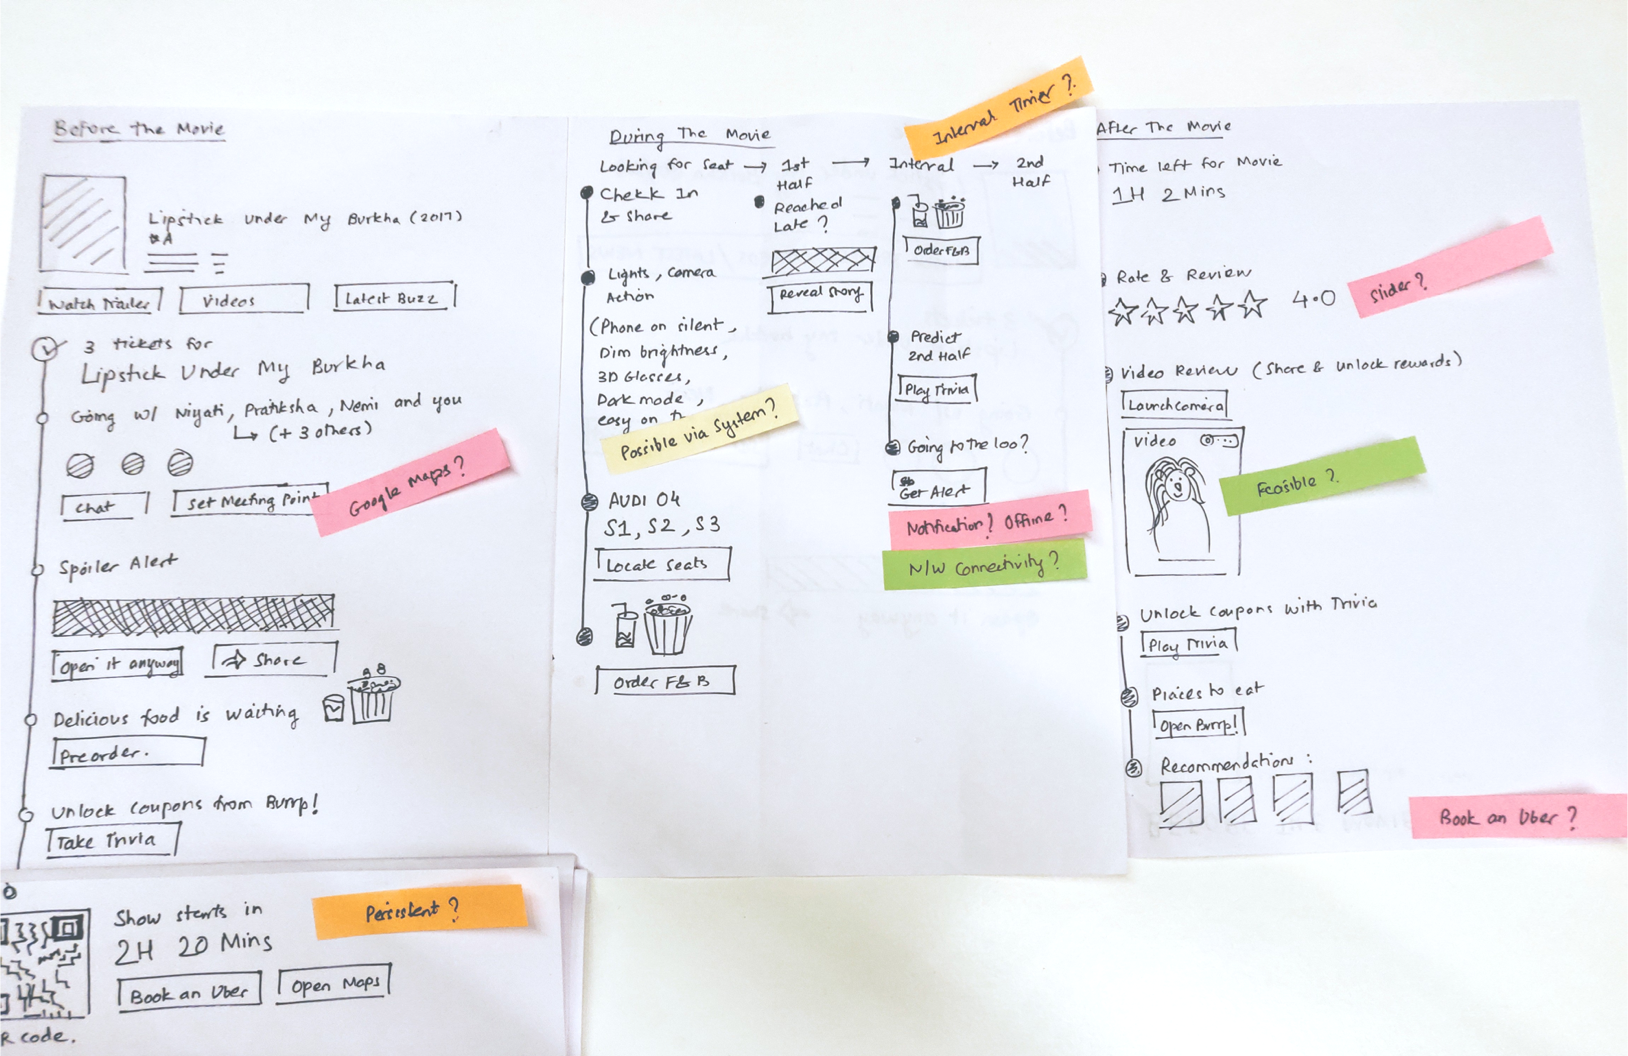 Before The Movie
Lipstick Under My Burkha (2017)
*A
Watch Trailer
Videos
Latest Buzz
3 tickets for
Lipstick Under My Burkha
Going w/ Niyati, Pratiksha, Nemi and you
(+ 3 others)
Chat
Set Meeting Point
Google Maps?
Spoiler Alert
Open it anyway
Share
Delicious food is waiting
Preorder.
Unlock coupons from Burrp!
Take Trivia
Show starts in
2H 20 Mins
Book an Uber
Open Maps
R code.
Persistent?
During The Movie
Looking for Seat → 1st Half → Interval → 2nd Half
Interval Timer?
Chekk In
& Share
Lights, Camera
Action
(Phone on silent,
Dim brightness,
3D Glasses,
Dark mode
easy on
Possible via System?
AUDI 04
S1, S2, S3
Locate Seats
Order F&B
Reached
Late?
Reveal Story
Order F&B
Predict
2nd Half
Play Trivia
Going to the loo?
Get Alert
Notification? Offline?
N/W Connectivity?
After The Movie
Time left for Movie
1H 2 Mins
Rate & Review
4.0
Slider?
Video Review (Share & unlock rewards)
Launch camera
Video
Feasible?
Unlock coupons with Trivia
Play Trivia
Places to eat
Open Burrp!
Recommendations:
Book an Uber?